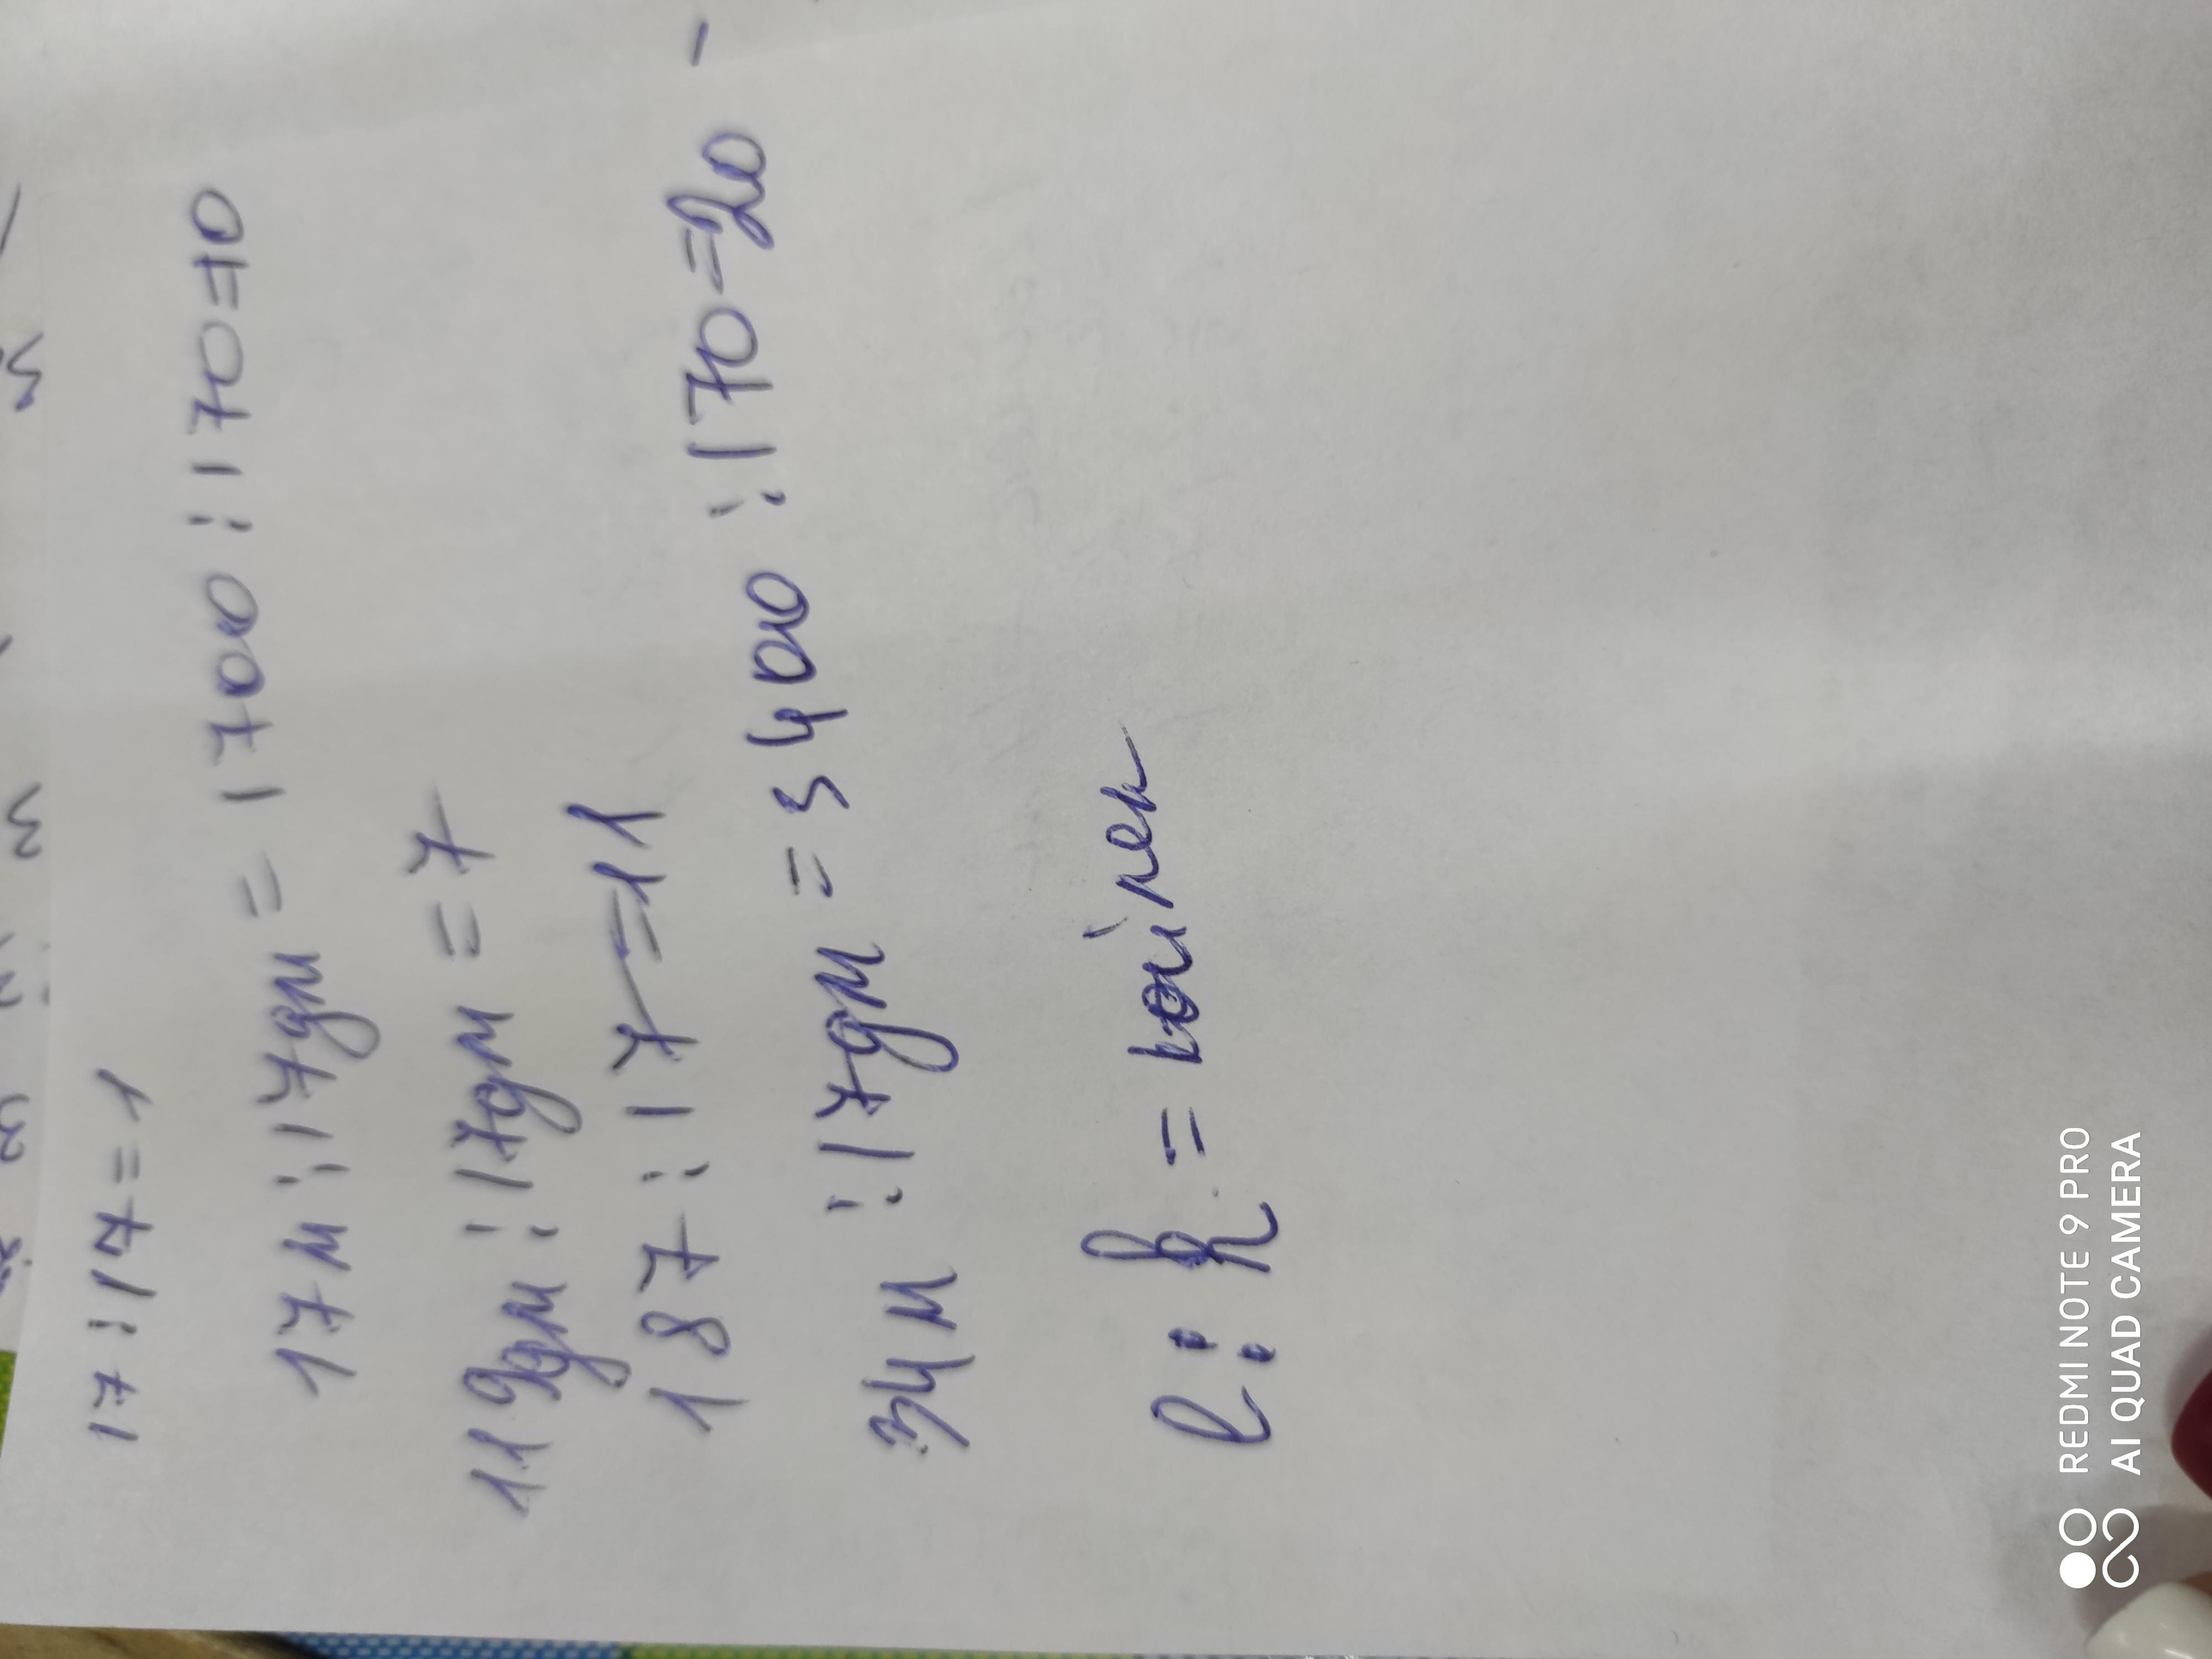 17 : 17 = 1
17м : 17дм = 1700 : 170=10
119дм : 17дм = 7
187 : 17=11
34м : 17дм = 3400 : 170=20
l : k = көйлек
REDMI NOTE 9 PRO
AI QUAD CAMERA